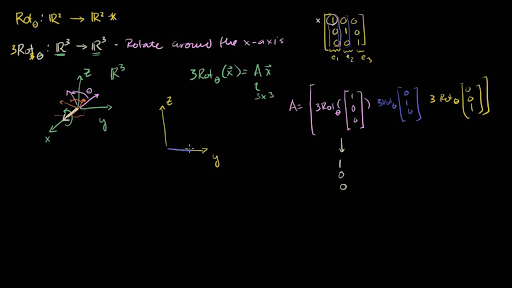 Rotθ : ℝ² → ℝ²
3Rotθ : ℝ³ → ℝ³ - Rotate around the x-axis
x [1 0 0
0 1 0
0 0 1]
e₁ e₂ e₃
z ℝ³
y
x
θ
3Rotθ(x⃗) = A x⃗
3×3
z
y
A = [3Rotθ([1 0 0]) 3Rotθ[0 1 0] 3Rotθ[0 0 1]]
↓
1
0
0